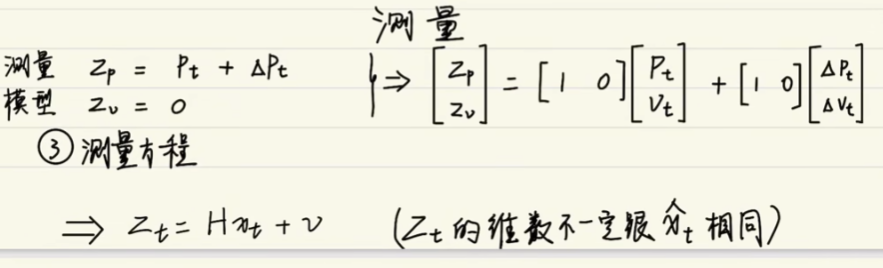 测量
测量 Zp = Pt + ΔPt
模型 Zv = 0
} ⇒ [Zp Zv] = [1 0][Pt Vt] + [1 0][ΔPt ΔVt]
③ 测量方程
⇒ Zt = Hxt + v (Zt 的维数不一定跟 x̂t 相同)